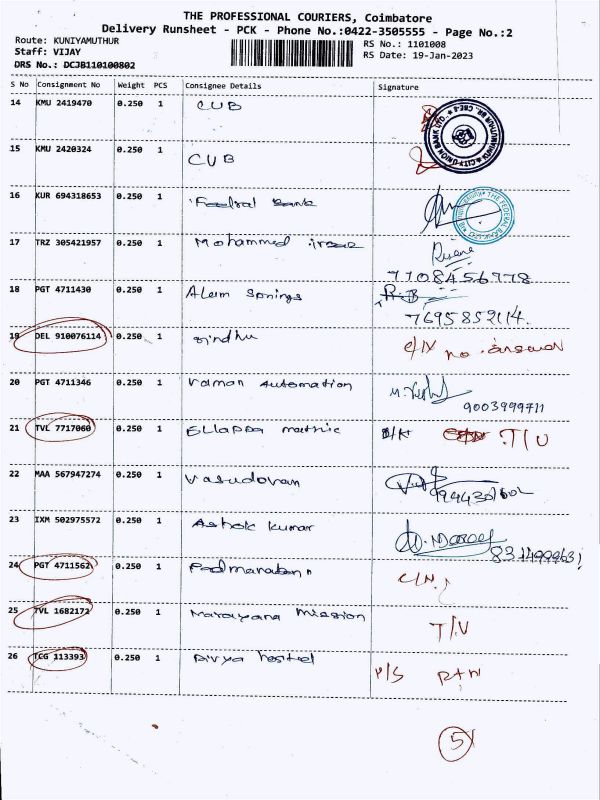 THE PROFESSIONAL COURIERS, Coimbatore
Delivery Runsheet - PCK - Phone No.:0422-3505555 - Page No.:2
Route: KUNIYAMUTHUR
RS No.: 1101008
Staff: VIJAY
RS Date: 19-Jan-2023
DRS No.: DCJB110100802
S No Consignment No Weight PCS Consignee Details Signature
14 KMU 2419470 0.250 1 CUB
15 KMU 2420324 0.250 1 CUB
16 KUR 694318653 0.250 1 Fedral Bank
17 TRZ 305421957 0.250 1 Mohammed
7708456778
18 PGT 4711430 0.250 1 Aleim Springs R.B
7695852114.
19 DEL 910076114 0.250 1 Sindhu no
20 PGT 4711346 0.250 1 Raman Automation
9003999711
21 TVL 7717060 0.250 1 Ellappa matric T/U
22 MAA 567947274 0.250 1 Vasudovan
23 IXM 502975572 0.250 1 Ashok Kumar
24 PGT 4711562 0.250 1
25 TVL 1682172 0.250 1 Narayana Mission T/U
26 TCG 113393 0.250 1 Divya hostel P/S
5